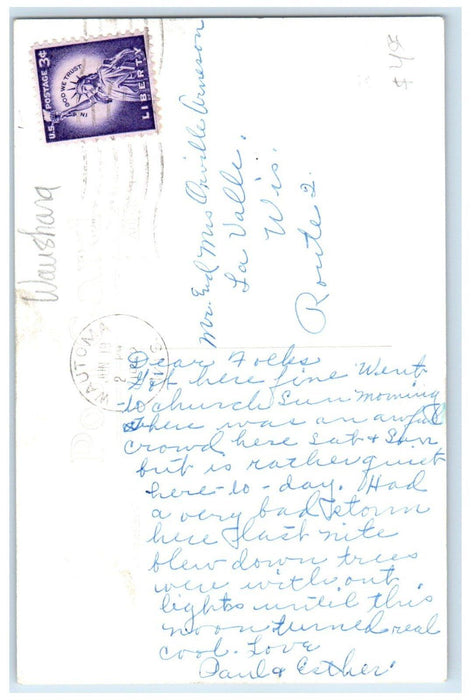 U.S. POSTAGE 3¢
IN GOD WE TRUST
LIBERTY
$ 4¢
Waushara
Mr. End Mrs Orville Arneson
La Valle,
Wis.
Route 2.
WAUTOMA
WIS.
2 PM
Dear Folks
Got here fine Went
to church Sun morning
there was an awful
crowd here Sat & Sun
but is rather quiet
here-to-day. Had
a very bad storm
here last nite
blew down trees
were without
lights until this
noon turned real
cool. Love
Paul & Esther